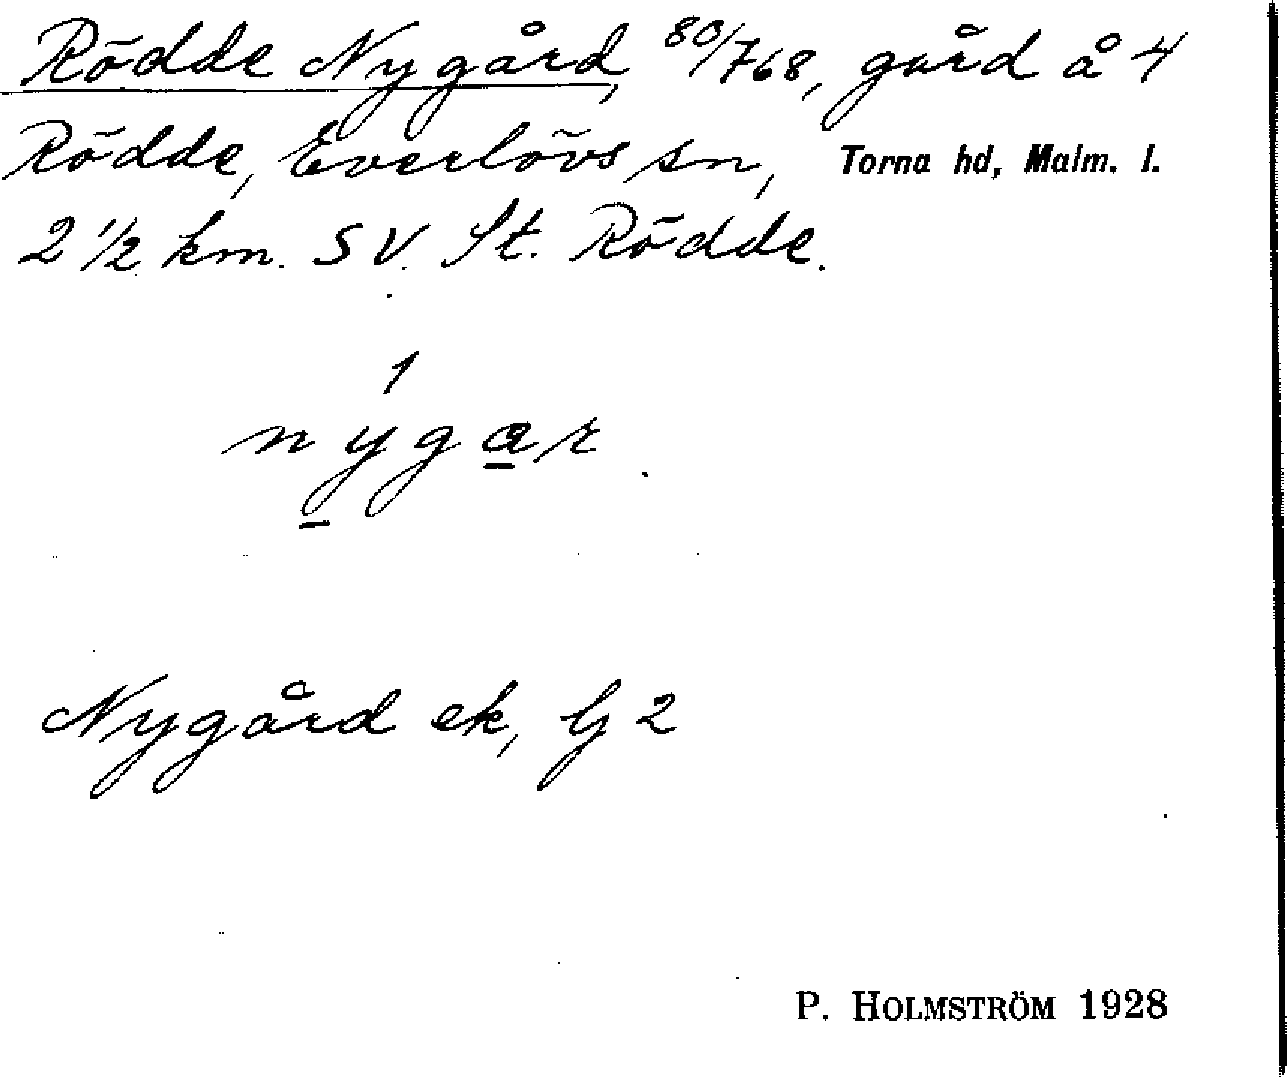 Rödde Nygård, 80/768, gård å 4
Rödde, Everlövs sn, Torna hd, Malm. l.
2 1/2 km. SV. St. Rödde.
1
nygar
Nygård ek, G 2
P. HOLMSTRÖM 1928